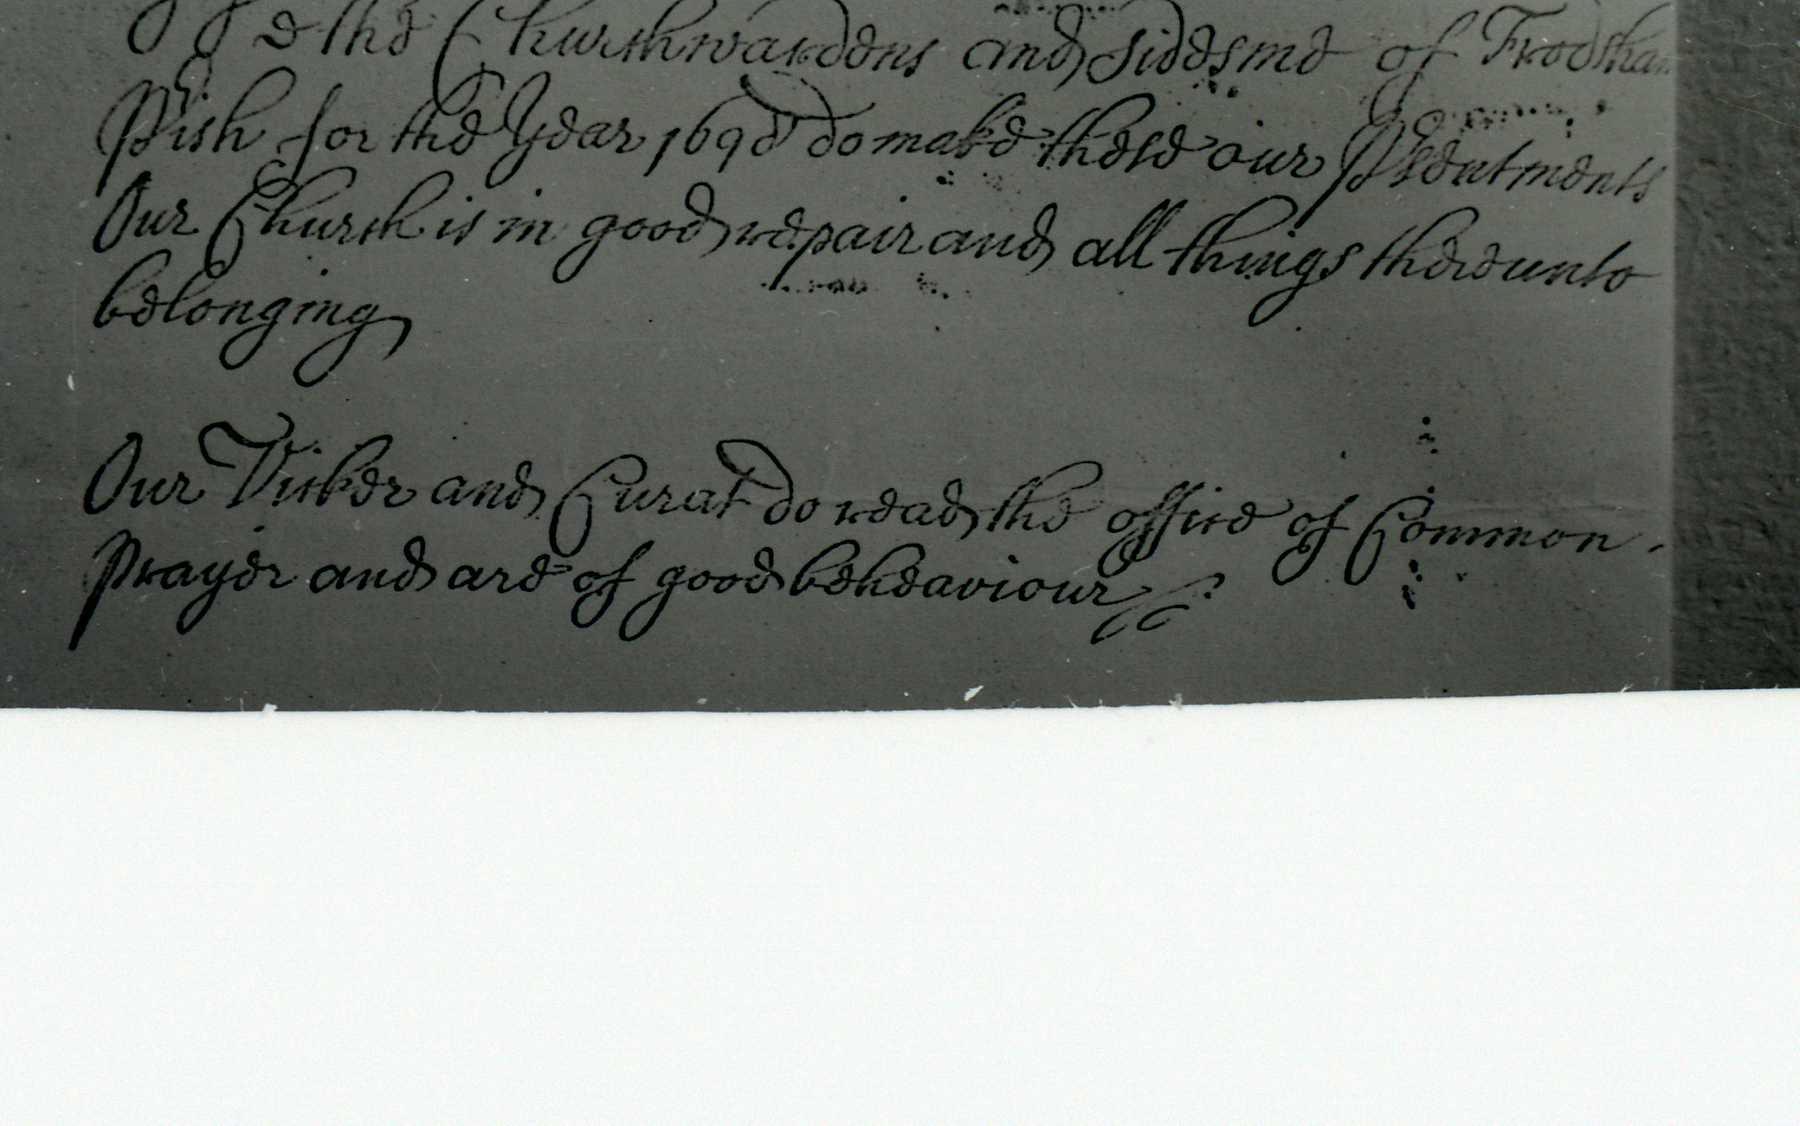 We the Churchwardens and Sidesme of Frodsham
Pish for the Year 1698 do make these our Psentments
Our Church is in good repair and all things thereunto
belonging
Our Vicker and Curat do read the office of Common
Prayer and are of good beheaviour